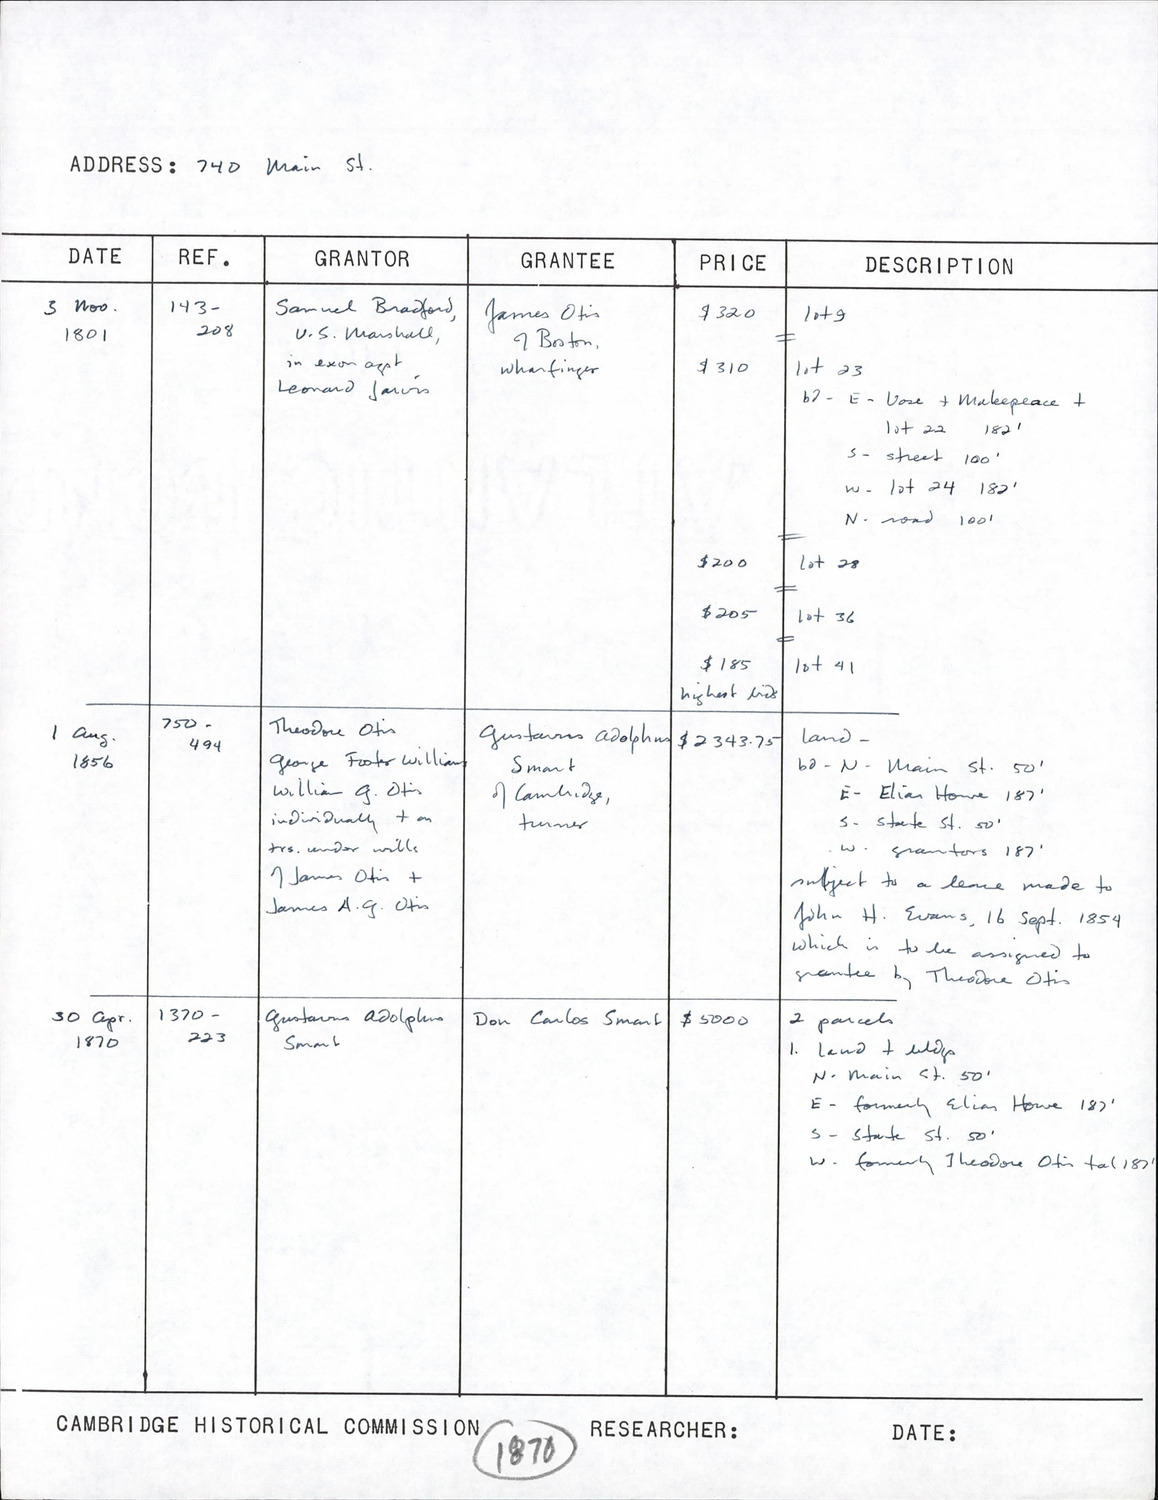 ADDRESS: 740 Main St.
DATE REF. GRANTOR GRANTEE PRICE DESCRIPTION
3 Nov.
1801
143-
208
Samuel Bradford,
U.S. Marshall,
in exon agst
Leonard Jarvis
James Otis
of Boston,
wharfinger
$320 lot 9
$310 lot 23
bd - E - Vose + Makepeace +
lot 22 182'
S - street 100'
W - lot 24 182'
N - road 100'
$200 lot 28
$205 lot 36
$185 lot 41
highest bids
1 Aug.
1856
750-
494
Theodore Otis
George Foster Williams
William G. Otis
individually + as
trs. under wills
of James Otis +
James A.G. Otis
Gustavus Adolphus
Smart
of Cambridge,
turner
$2343.75
land -
bd - N - Main St. 50'
E - Elias Howe 187'
S - State St. 50'
W - grantors 187'
subject to a lease made to
John H. Evans, 16 Sept. 1854
which is to be assigned to
grantee by Theodore Otis
30 Apr.
1870
1370-
223
Gustavus Adolphus
Smart
Don Carlos Smart
$5000
2 parcels
1. land + bldgs
N - Main St. 50'
E - formerly Elias Howe 187'
S - State St. 50'
W - formerly Theodore Otis tal 187'
CAMBRIDGE HISTORICAL COMMISSION RESEARCHER: DATE:
1870